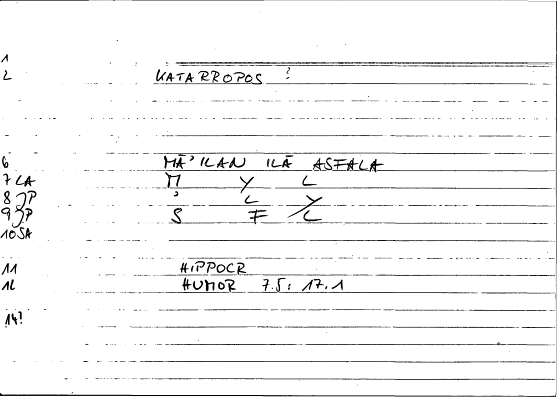 1
2 KATARROPOS ?
6 MĀ'ILAN ILĀ ASFALA
7 LA M Y L
8 JP ' L Y
9 JP S F / L
10 SA
11 HIPPOCR
12 HUMOR 7.5: 17.1
14?